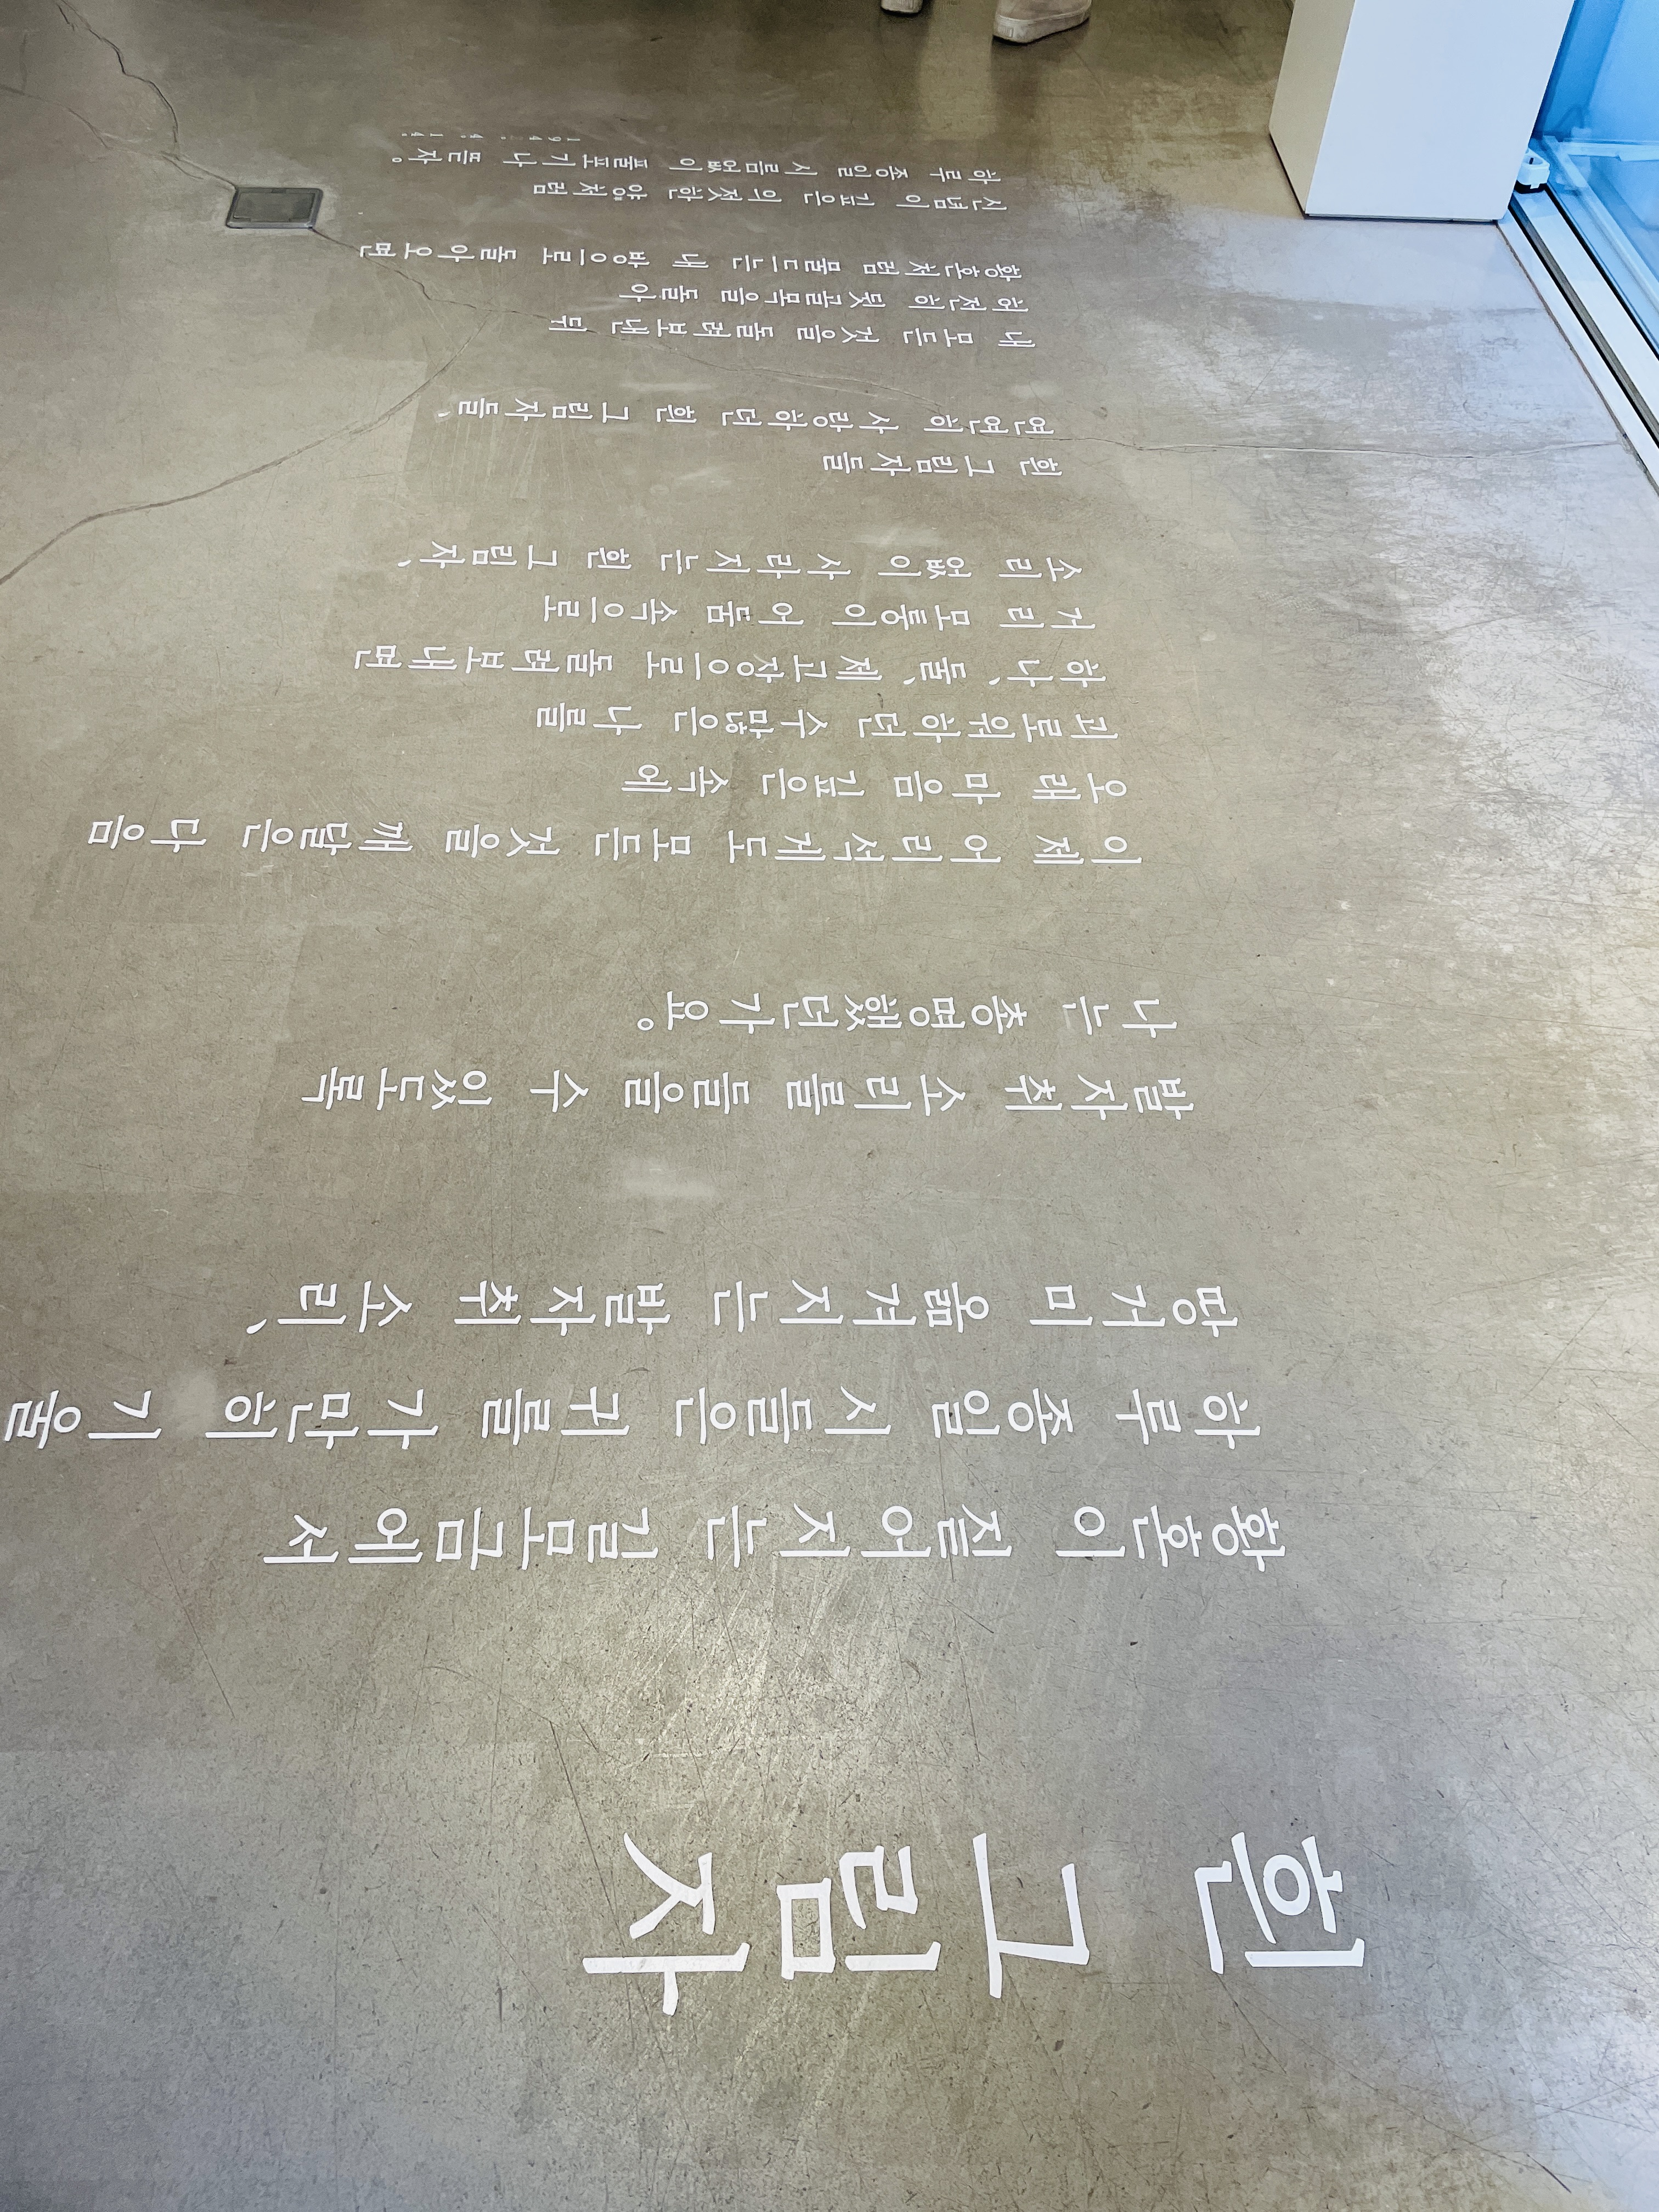 흰 그림자
황혼이 짙어지는 길모금에서
하루 종일 시들은 귀를 가만히 기울
땅거미 옮겨지는 발자취 소리、
발자취 소리를 들을 수 있도록
나는 총명했던가요。
이제 어리석게도 모든 것을 깨달은 다음
오래 마음 깊은 속에
괴로워하던 수많은 나를
하나、 둘、 제고장으로 돌려보내면
거리 모퉁이 어둠 속으로
소리 없이 사라지는 흰 그림자、
흰 그림자들
연연히 사랑하던 흰 그림자들、
내 모든 것을 돌려보낸 뒤
허전히 뒷골목을 돌아
황혼처럼 물드는 내 방으로 돌아오면
신념이 깊은 의젓한 양처럼
하루 종일 시름없이 풀포기나 뜯자。